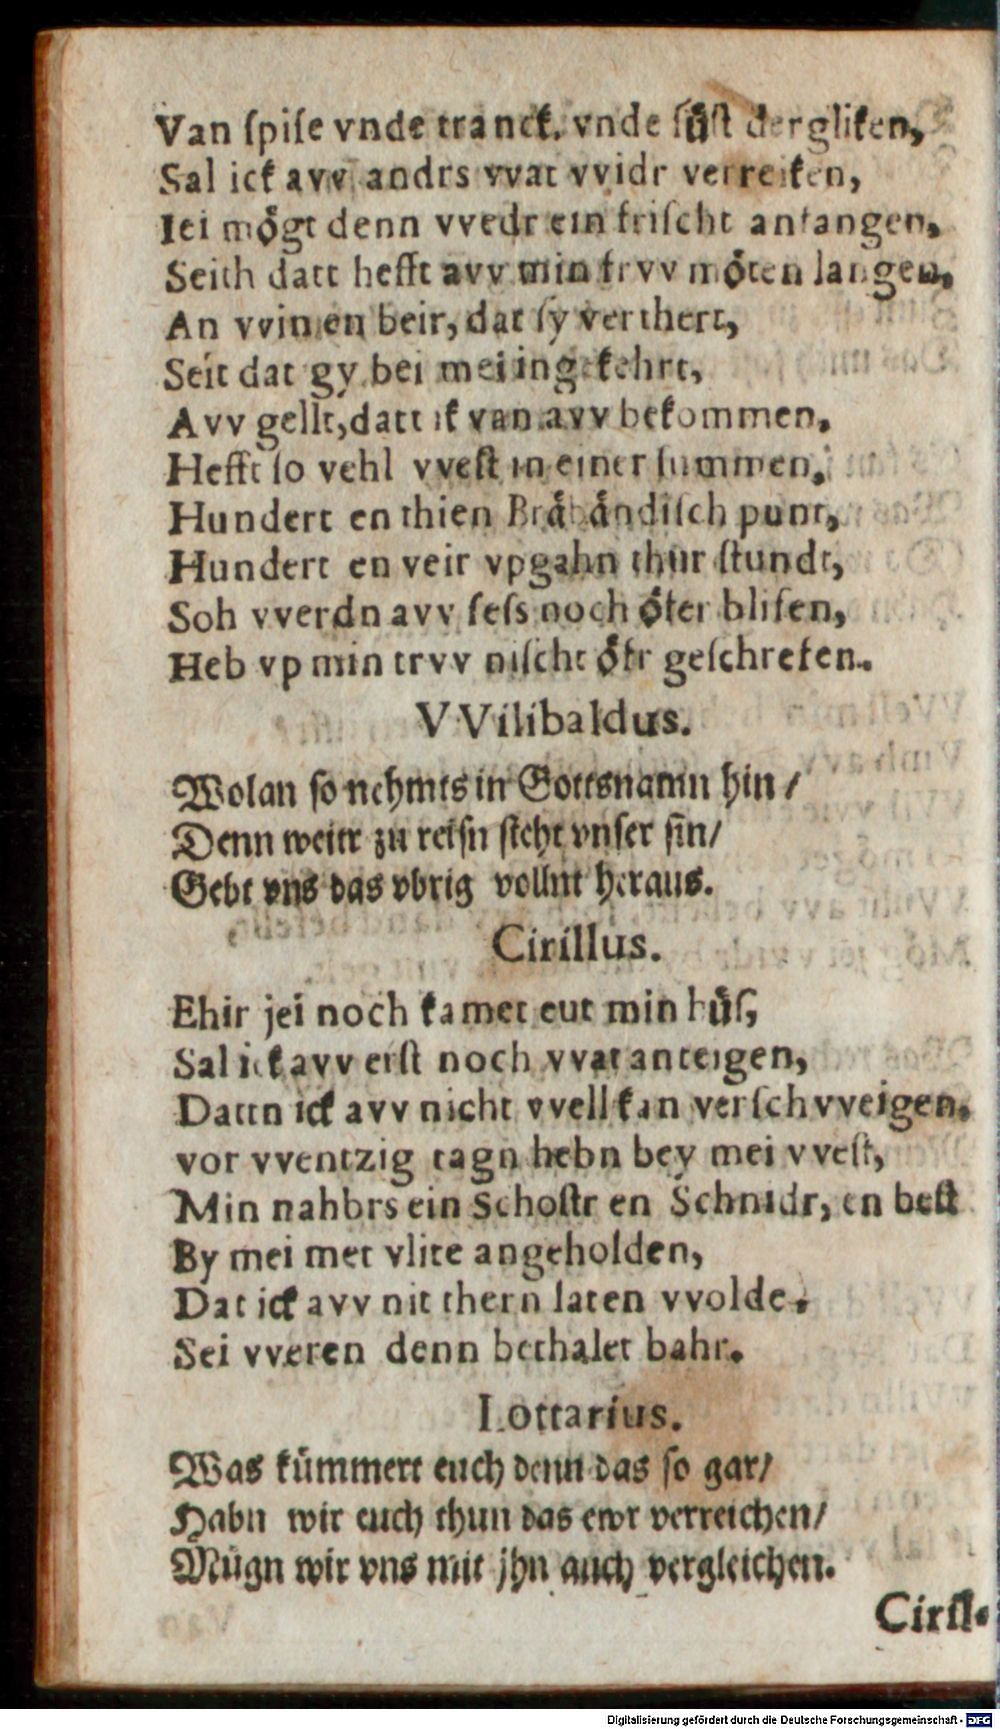 Van ſpiſe vnde tranck. vnde ſuͤſt dergliken,
Sal ick avv andrs vvat vvidr verreiken,
Iei moͤgt denn vvedr ein friſcht anfangen.
Seith datt hefft avv min frvv moͤten langen,
An vvin en beir, dat ſy verthert,
Seit dat gy bei mei ingekehrt,
Avv gellt, datt ik van avv bekommen.
Hefft ſo vehl vveſt in einer ſummen.
Hundert en thien Braͤbaͤndiſch punt,
Hundert en veir vpgahn thur ſtundt,
Soh vverdn avv ſeſs noch oͤfer bliſen,
Heb vp min trvv niſcht oͤfr geſchreſen.
VVilibaldus.
Wolan ſo nehmts in Gottsnamn hin /
Denn weitr zu reiſn ſteht vnſer ſin/
Gebt vns das vbrig vollnt heraus.
Cirillus.
Ehir jei noch kamet eut min huͤſ,
Sal ick avv erſt noch vvat anteigen,
Dattn ick avv nicht vvell kan verſchvveigen.
vor vventzig tagn hebn bey mei vveſt,
Min nahbrs ein Schoſtr en Schnidr, en beſt
By mei met vlite angeholden,
Dat ick avv nit thern laten vvolde.
Sei vveren denn bethalet bahr.
Lottarius.
Was kuͤmmert euch denn das ſo gar/
Habn wir euch thun das ewr verreichen/
Muͤgn wir vns mit jhn auch vergleichen.
Ciril-
Digitalisierung gefördert durch die Deutsche Forschungsgemeinschaft - DFG